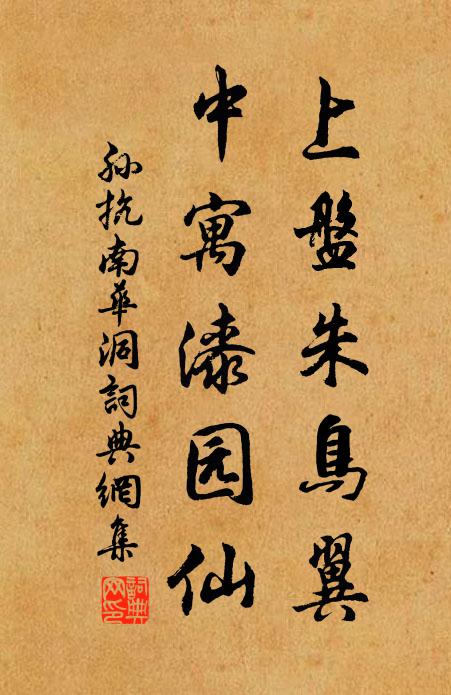 上盤朱鳥翼
中寓漆园仙
孙抗南華洞詞典網集
詞典